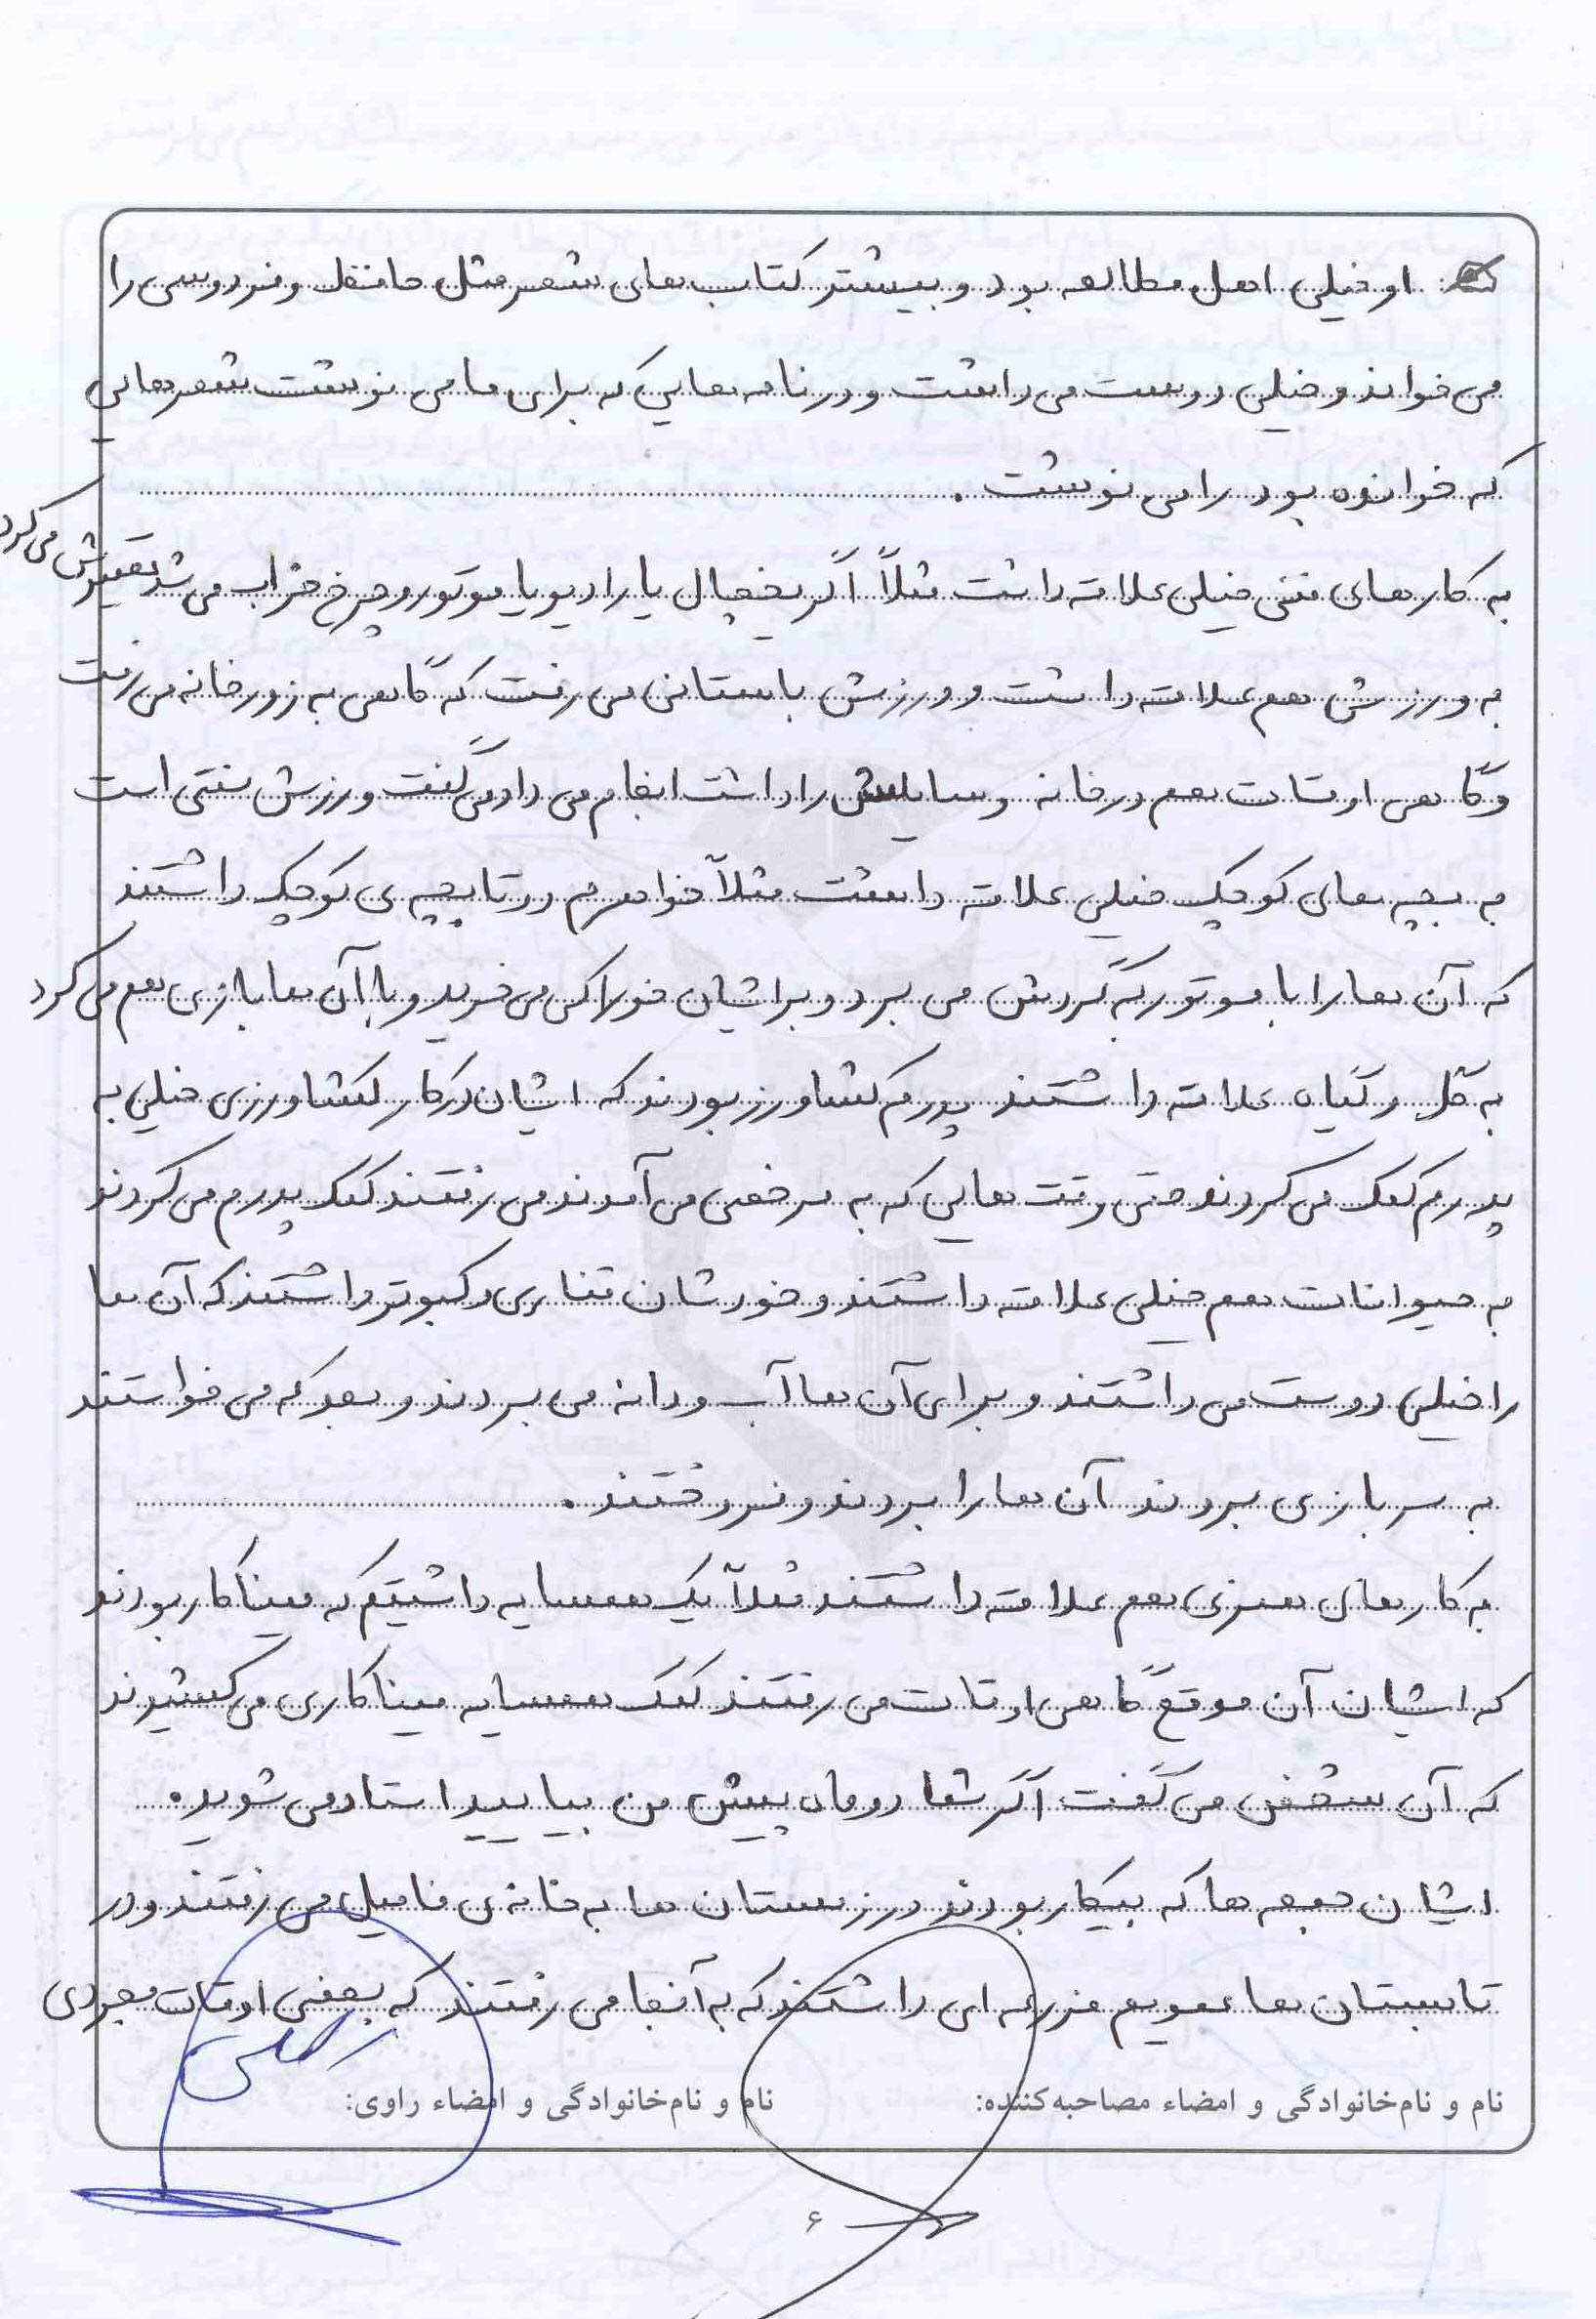 او خیلی اهل مطالعه بود و بیشتر کتاب های شعر مثل حافظ و فردوسی را
می خواند و خیلی دوست می داشت و در نامه هایی که برای ما می نوشت شعرهایی
که خوانده بود را می نوشت .
به کارهای فنی خیلی علاقه داشت مثلاً اگر یخچال یا رادیو یا موتور و چرخ خراب می شد تعمیرش می کرد
به ورزش هم علاقه داشت و ورزش باستانی می رفت که گاهی به زورخانه می رفت
و گاهی اوقات هم در خانه وسایلش را داشت انجام می داد می گفت ورزش سنتی است
به بچه های کوچک خیلی علاقه داشت مثلاً خواهرم دو تا بچه ی کوچک داشتند
که آن ها را با موتور به گردش می برد و براشان خوراکی می خرید و با آن ها بازی هم می کرد
به گل و گیاه علاقه داشتند پدرم کشاورز بودند که ایشان در کار کشاورزی خیلی به
پدرم کمک می کردند حتی وقت هایی که به مرخصی می آمدند می رفتند کمک پدرم می کردند
به حیوانات هم خیلی علاقه داشتند و خودشان قناری و کبوتر داشتند که آن ها
را خیلی دوست می داشتند و برای آن ها آب و دانه می بردند و بعد که می خواستند
به سربازی بروند آن ها را بردند و فروختند .
به کارهای هنری هم علاقه داشتند مثلاً یک همسایه داشتیم که میناکار بودند
که ایشان آن موقع گاهی اوقات می رفتند کمک همسایه میناکاری می کشیدند
که آن شخص می گفت اگر شما دو ماه پیش من بیایید استاد می شوید.
ایشان جمعه ها که بیکار بودند در زمستان ها به خانه ی فامیل می رفتند و در
تابستان ها عمویم مزرعه ای داشتند که به آنجا می رفتند که بعضی اوقات مجردی
نام و نام‌خانوادگی و امضاء مصاحبه‌کننده:
نام و نام‌خانوادگی و امضاء راوی:
۶